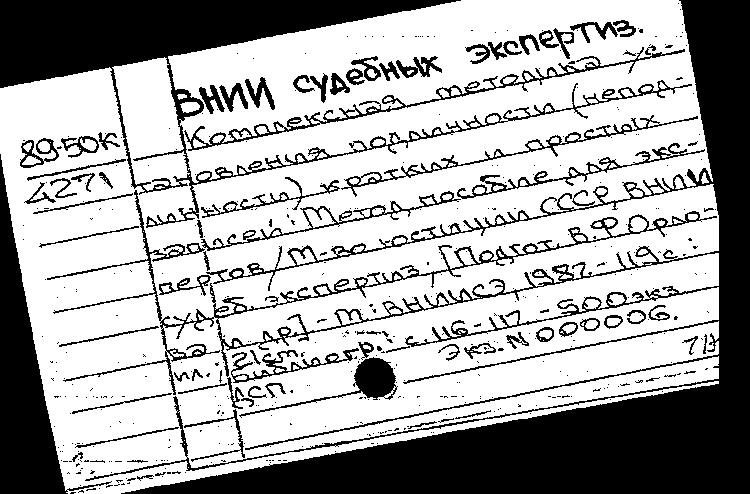 ВНИИ судебных экспертиз.
89-50К
4271
Комплексная методика ус-
тановления подлинности (непод-
линности) кратких и простых
записей: Метод. пособие для экс-
пертов / М-во юстиции СССР, ВНИИ
судеб. экспертиз; [Подгот. В.Ф. Орло-
ва и др.] - М.: ВНИИСЭ, 1987. - 119 с.:
ил.; 21 см.
Библиогр.: с. 116-117 - 500 экз.
ДСП.
Экз. N 000006.